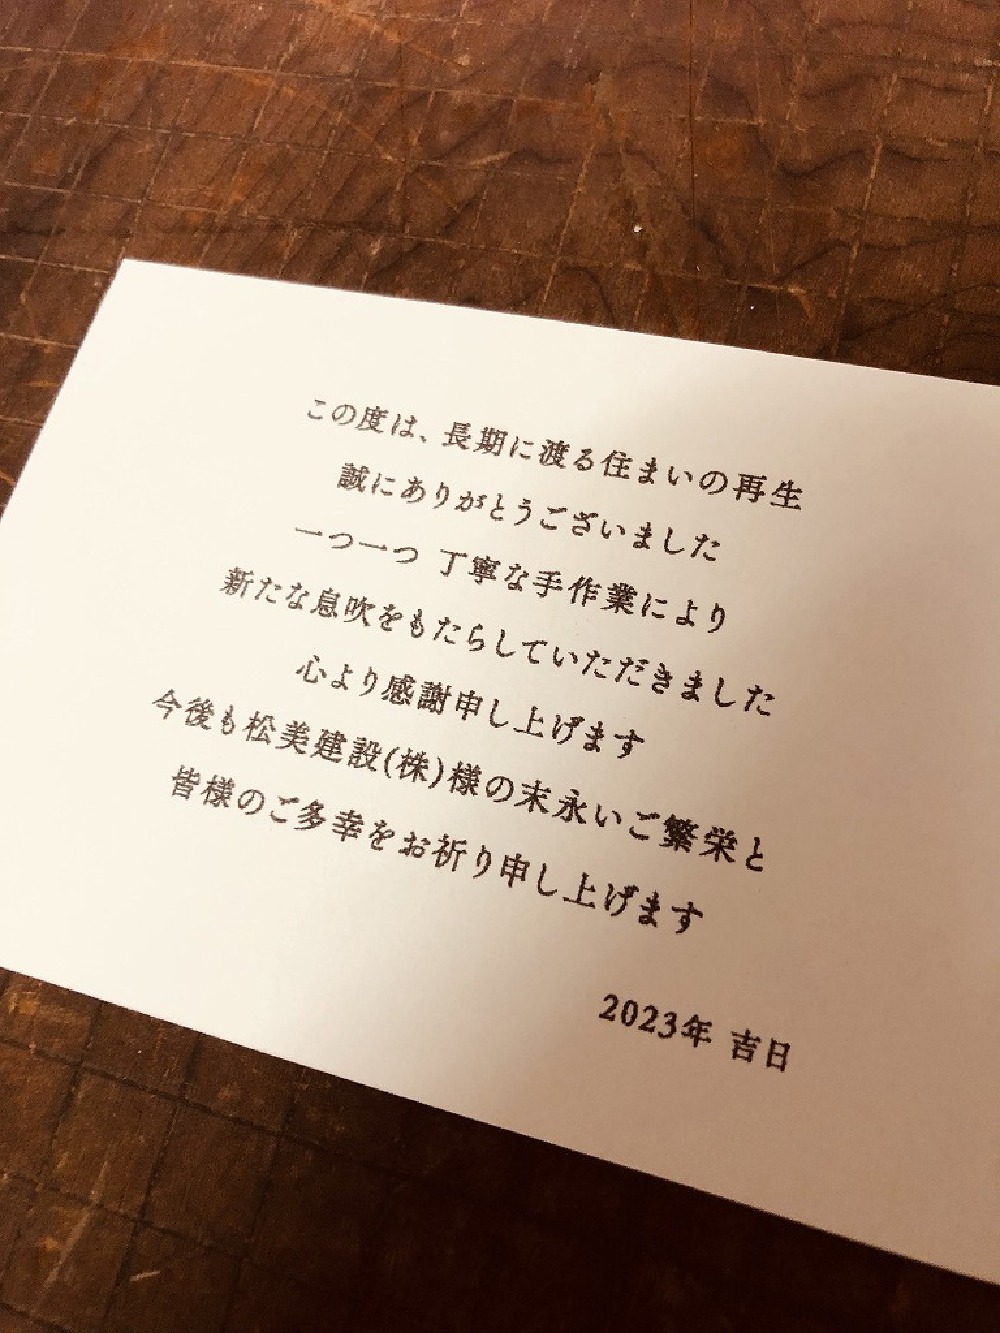 この度は、長期に渡る住まいの再生
誠にありがとうございました
一つ一つ 丁寧な手作業により
新たな息吹をもたらしていただきました
心より感謝申し上げます
今後も松美建設(株)様の末永いご繁栄と
皆様のご多幸をお祈り申し上げます
2023年 吉日